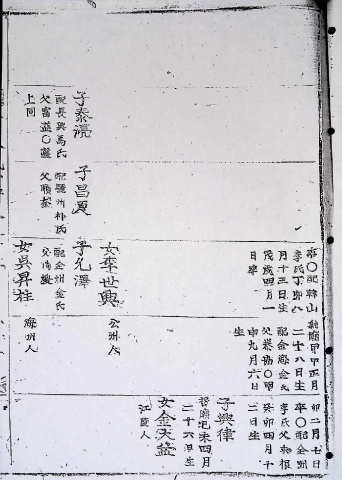 子泰濂
配長興馬氏
上同
子昌夏
朴氏
卒○配韓山
李氏丁卯八
月十三日生
戊戌四月一
日卒
女李世興
子允澤
配金州金氏
女吳昇柱
甲午正月
二十八日生
配金海金氏
申九月六日
生
公州人
海州人
卯二月七日
卒○配全州
李氏父和根
癸卯四月十
二日生
子興律
哲廟己未四月
二十六日生
女金天益
江陵人